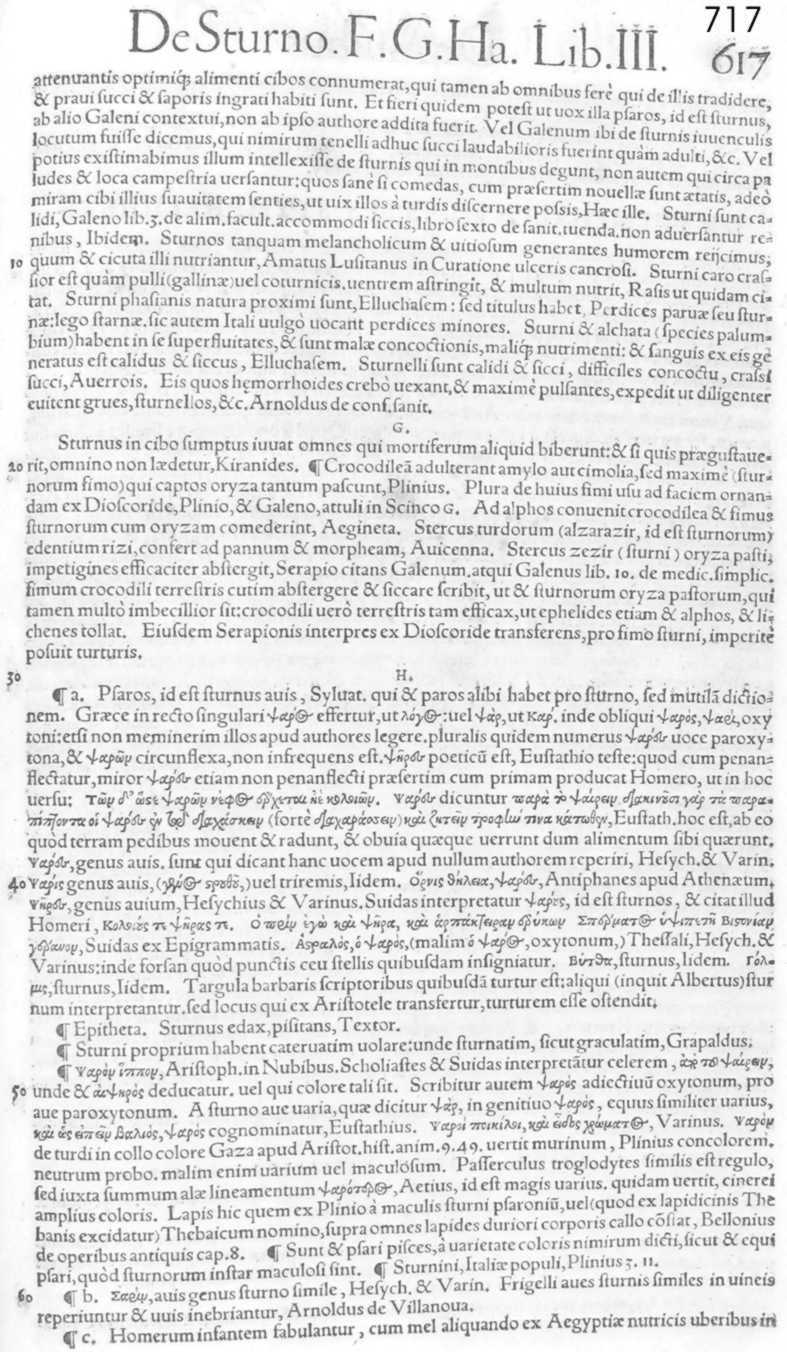 717
De Sturno. F. G. Ha. Lib. III. 617
attenuantis optimiq́; alimenti cibos connumerat, qui tamen ab omnibus ferè qui de illis tradidere,
& praui succi & saporis ingrati habiti sunt. Et fieri quidem potest ut uox illa psaros, id est sturnus,
ab alio Galeni contextui, non ab ipso authore addita fuerit. Vel Galenum ibi de sturnis iuuenculis
locutum fuisse dicemus, qui nimirum tenelli adhuc succi laudabilioris fuerint quàm adulti, &c. Vel
potius existimabimus illum intellexisse de sturnis qui in montibus degunt, non autem qui circa pa
ludes & loca campestria uersantur: quos sanè si comedas, cum præsertim nouellæ sunt ætatis, adeò
miram cibi illius suauitatem senties, ut uix illos à turdis discernere possis, Hæc ille. Sturni sunt ca-
lidi, Galeno lib. 3. de alim. facult. accommodi siccis, libro sexto de sanit. tuenda. non aduersantur re-
nibus, Ibidem. Sturnos tanquam melancholicum & uitiosum generantes humorem reijcimus,
10 quum & cicuta illi nutriantur, Amatus Lusitanus in Curatione ulceris cancrosi. Sturni caro cras-
sior est quàm pulli (gallinæ) uel coturnicis. uentrem astringit, & multum nutrit, Rasis ut quidam ci-
tat. Sturni phasianis natura proximi sunt, Elluchasem: sed titulus habet, Perdices paruæ seu stur-
næ: lego starnæ. sic autem Itali uulgò uocant perdices minores. Sturni & alchata (species palum-
bium) habent in se superfluitates, & sunt malæ concoctionis, maliq́; nutrimenti: & sanguis ex eis ge
neratus est calidus & siccus, Elluchasem. Sturnelli sunt calidi & sicci, difficiles concoctu, crassi
succi, Auerrois. Eis quos hęmorrhoides crebò uexant, & maximè pulsantes, expedit ut diligenter
euitent grues, sturnellos, &c. Arnoldus de conf. sanit.
G.
Sturnus in cibo sumptus iuuat omnes qui mortiferum aliquid biberunt: & si quis prægustaue-
20 rit, omnino non lædetur, Kiranides. ¶ Crocodileā adulterant amylo aut cimolia, sed maximè (stur-
norum fimo) qui captos oryza tantum pascunt, Plinius. Plura de huius fimi usu ad faciem ornan-
dam ex Dioscoride, Plinio, & Galeno, attuli in Scinco G. Ad alphos conuenit crocodilea & fimus
sturnorum cum oryzam comederint, Aegineta. Stercus turdorum (alzarazir, id est sturnorum)
edentium rizi, confert ad pannum & morpheam, Auicenna. Stercus zezir (sturni) oryza pasti,
impetigines efficaciter abstergit, Serapio citans Galenum. atqui Galenus lib. 10. de medic. simplic.
fimum crocodili terrestris cutim abstergere & siccare scribit, ut & sturnorum oryza pastorum, qui
tamen multò imbecillior sit: crocodili uerò terrestris tam efficax, ut ephelides etiam & alphos, & li-
chenes tollat. Eiusdem Serapionis interpres ex Dioscoride transferens, pro fimo sturni, imperitè
posuit turturis.
30 H.
¶ a. Psaros, id est sturnus auis, Syluat. qui & paros alibi habet pro sturno, sed mutilā dictio-
nem. Græce in recto singulari ψαρος effertur, ut λόγος: uel ψὰρ, ut Καρ. inde obliqui ψαρὸς, ψαρὶ, oxy
toni: etsi non meminerim illos apud authores legere. pluralis quidem numerus ψαροι uoce paroxy-
tona, & ψαρῶν circunflexa, non infrequens est. ψῆρες poeticū est, Eustathio teste: quod cum penan-
flectatur, miror ψαρες etiam non penanflecti præsertim cum primam producat Homero, ut in hoc
uersu: Τῶν δ' ὥστε ψαρῶν νέφος ἔρχεται ἠὲ κολοιῶν. Ψαρες dicuntur παρὰ τὸ ψαίρειν, διακινοῦσι γάρ τὰ παρα-
πίπτοντα οἱ ψαρες ἐν τῷ διαχάσκειν (fortè διαχαράσσειν) καὶ ζητεῖν τροφήν τινα κάτωθεν, Eustath. hoc est, ab eo
quòd terram pedibus mouent & radunt, & obuia quæque uerrunt dum alimentum sibi quærunt.
Ψαρες, genus auis. sunt qui dicant hanc uocem apud nullum authorem reperiri, Hesych. & Varin.
40 Ψαρις genus auis, (γένος στρουθοῦ,) uel triremis, Iidem. Ὄρνις θήλεια, ψαρες, Antiphanes apud Athenæum.
Ψῆρες, genus auium, Hesychius & Varinus. Suidas interpretatur ψαρες, id est sturnos, & citat illud
Homeri, Κολοιός τε ψῆρας τε. Ὁ πρὶν ἐγὼ καὶ ψῆρα, καὶ ἁρπάκτειραν ἐρύκων Σπέρματος ὑψιπετῆ Βιστονίαν
γέρανον, Suidas ex Epigrammatis. Ἀστραλὸς, ὁ ψαρὸς, (malim ὁ ψαρος, oxytonum,) Thessali, Hesych. &
Varinus: inde forsan quòd punctis ceu stellis quibusdam insigniatur. Βύτθα, sturnus, Iidem. Γόλ-
μις, sturnus, Iidem. Targula barbaris scriptoribus quibusdā turtur est: aliqui (inquit Albertus) stur
num interpretantur. sed locus qui ex Aristotele transfertur, turturem esse ostendit.
¶ Epitheta. Sturnus edax, pisitans, Textor.
¶ Sturni proprium habent cateruatim uolare: unde sturnatim, sicut graculatim, Grapaldus.
¶ Ψαρὸν ἵππον, Aristoph. in Nubibus. Scholiastes & Suidas interpretātur celerem, ἀπὸ τοῦ ψαίρειν,
50 unde & αἰψηρὸς deducatur. uel qui colore tali sit. Scribitur autem ψαρὸς adiectiuū oxytonum, pro
aue paroxytonum. A sturno aue uaria, quæ dicitur ψάρ, in genitiuo ψαρὸς, equus similiter uarius,
καὶ ὡς εἰπεῖν βαλιὸς, ψαρὸς cognominatur, Eustathius. Ψαροὶ ποικίλοι, καὶ εἶδος χρώματος, Varinus. Ψαρὸν
de turdi in collo colore Gaza apud Aristot. hist. anim. 9. 49. uertit murinum, Plinius concolorem.
neutrum probo. malim enim uarium uel maculosum. Passerculus troglodytes similis est regulo,
sed iuxta summum alæ lineamentum ψαρότερος, Aetius, id est magis uarius. quidam uertit, cinerei
amplius coloris. Lapis hic quem ex Plinio à maculis sturni psaroniū, uel (quod ex lapidicinis The
banis excidatur) Thebaicum nomino, supra omnes lapides duriori corporis callo cōstat, Bellonius
de operibus antiquis cap. 8. ¶ Sunt & psari pisces, à uarietate coloris nimirum dicti, sicut & equi
psari, quòd sturnorum instar maculosi sint. ¶ Sturnini, Italiæ populi, Plinius 3. 11.
60 ¶ b. Σαρὶν, auis genus sturno simile, Hesych. & Varin. Frigelli aues sturnis similes in uineis
reperiuntur & uuis inebriantur, Arnoldus de Villanoua.
¶ c. Homerum infantem fabulantur, cum mel aliquando ex Aegyptiæ nutricis uberibus in